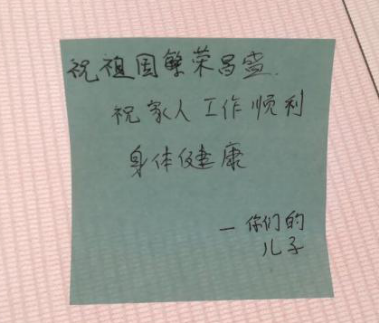 祝祖国繁荣昌盛.
祝家人工作顺利
身体健康
—你们的
儿子